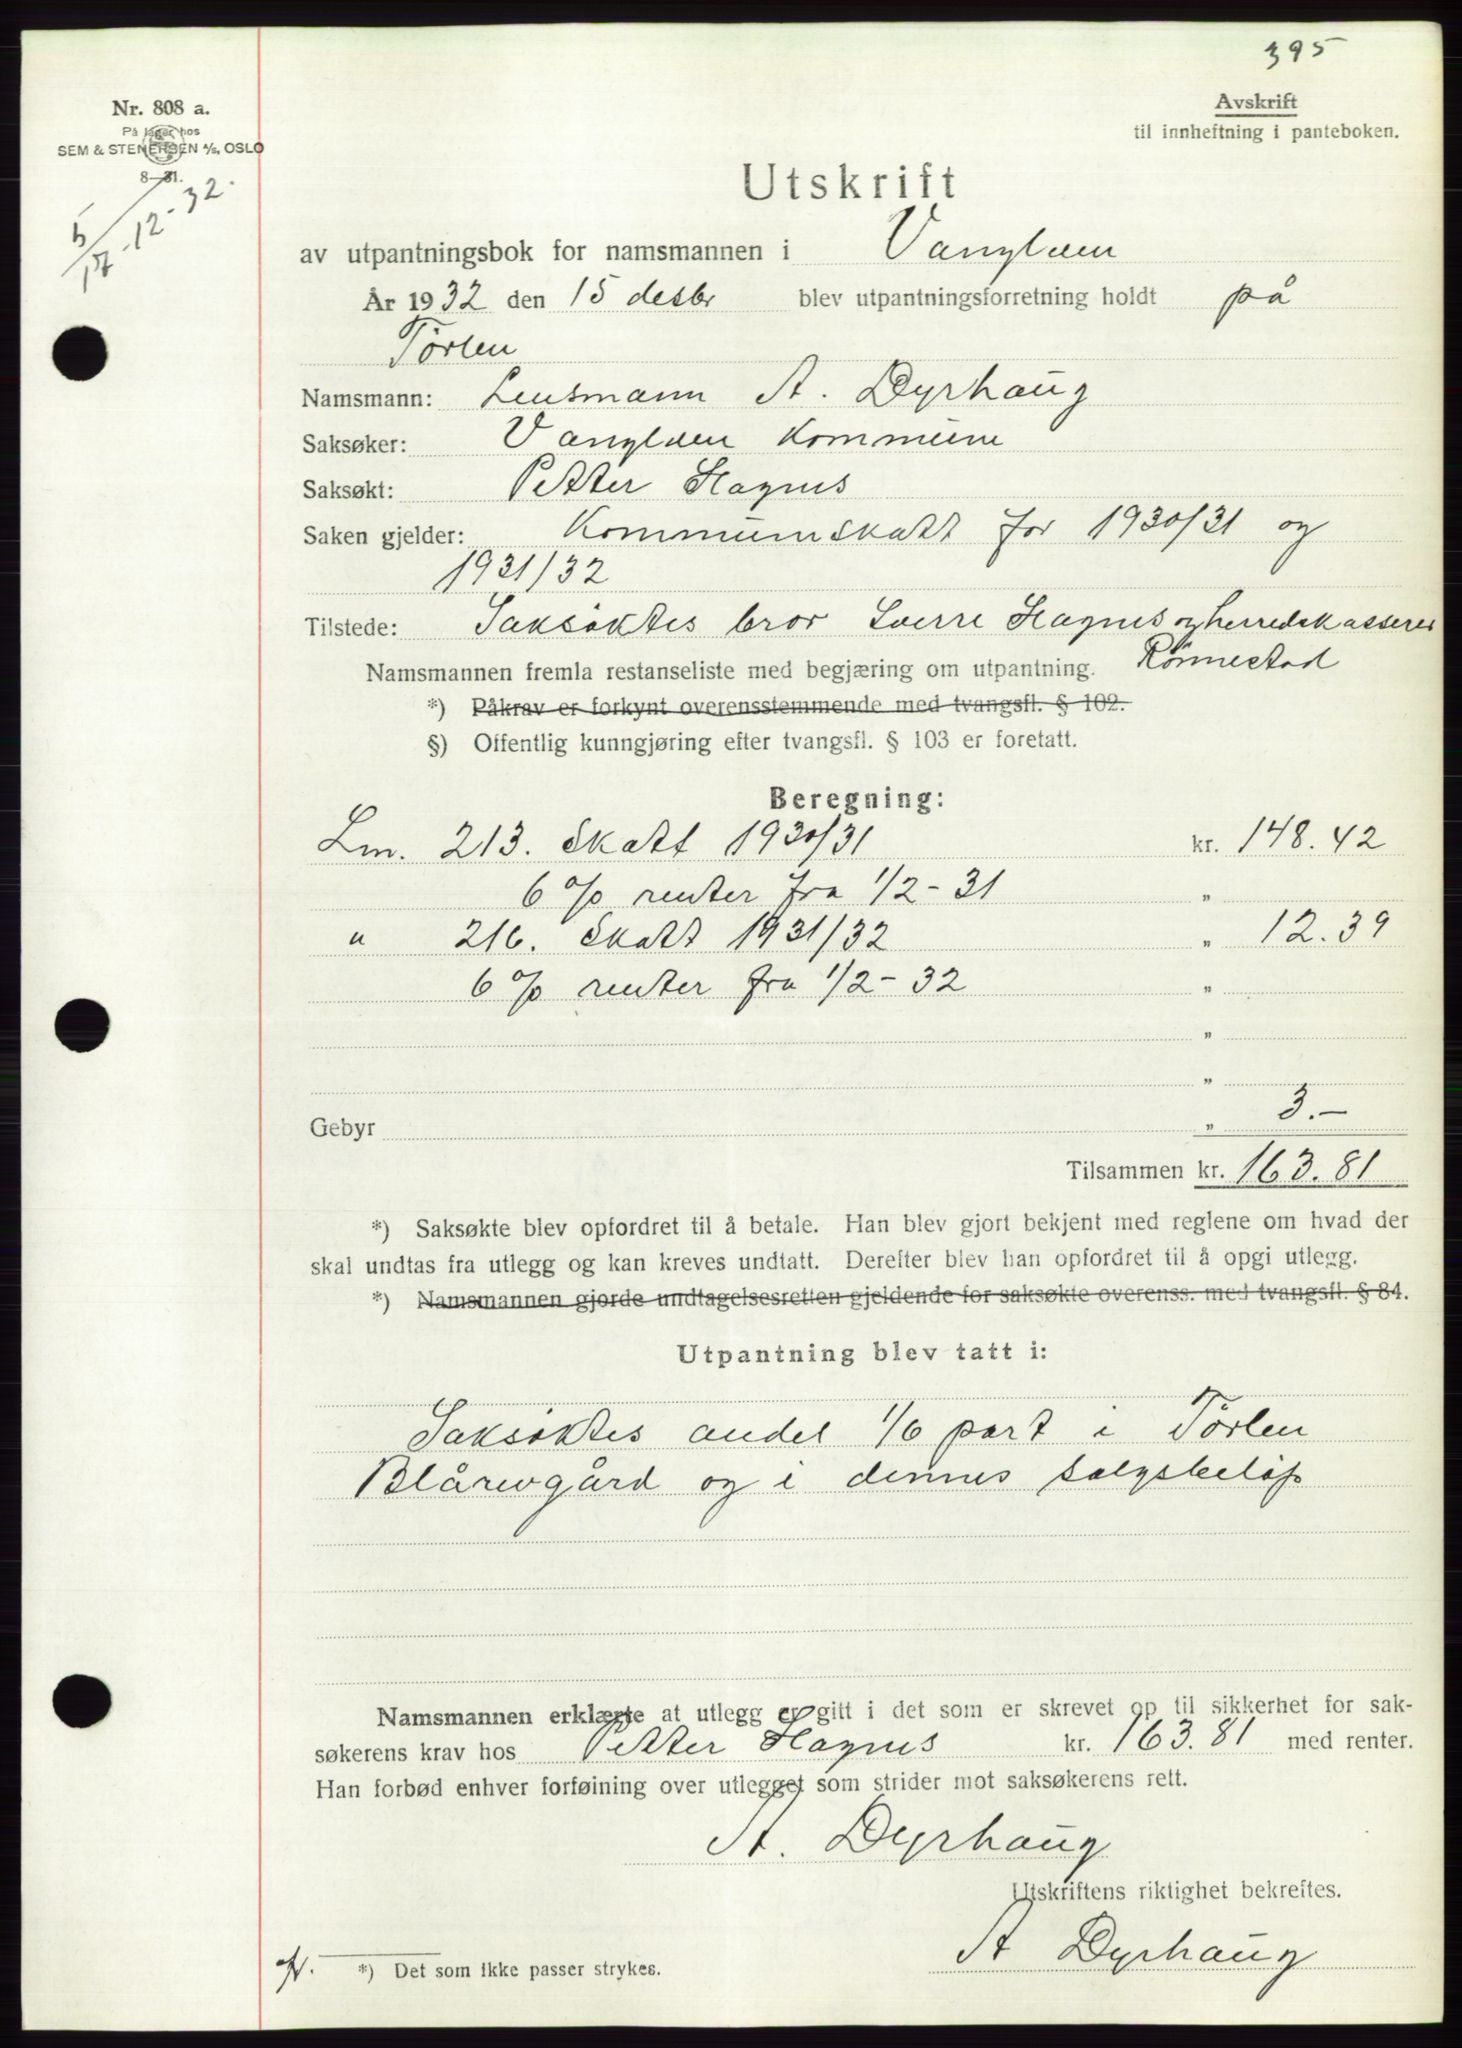 395
Nr. 808 a.
På lager hos
SEM & STENERSEN A/S, OSLO
8—31.
5/17-12-32.
Avskrift
til innheftning i panteboken.
Utskrift
av utpantningsbok for namsmannen i Vanylven
År 1932 den 15 desbr blev utpantningsforretning holdt på
Tørlen
Namsmann: Lensmann A. Dyrhaug
Saksøker: Vanylven Kommune
Saksøkt: Petter Hagnes
Saken gjelder: Kommuneskatt for 1930/31 og
1931/32
Tilstede: Saksøktes bror Sverre Hagnes og herredskasserer
Rønnestad
Namsmannen fremla restanseliste med begjæring om utpantning.
*) Påkrav er forkynt overensstemmende med tvangsfl. § 102.
§) Offentlig kunngjøring efter tvangsfl. § 103 er foretatt.
Beregning:
Lm. 213. Skatt 1930/31 kr. 148.42
6 % renter fra 1/2-31 „
" 216. Skatt 1931/32 „ 12.39
6 % renter fra 1/2-32 „
„
„
Gebyr „ 3.—
Tilsammen kr. 163.81
*) Saksøkte blev opfordret til å betale. Han blev gjort bekjent med reglene om hvad der
skal undtas fra utlegg og kan kreves undtatt. Derefter blev han opfordret til å opgi utlegg.
*) Namsmannen gjorde undtagelsesretten gjeldende for saksøkte overenss. med tvangsfl. § 84.
Utpantning blev tatt i:
Saksøktes andel 1/6 part i Tørlen
og i dennes salgsbeløp
Namsmannen erklærte at utlegg er gitt i det som er skrevet op til sikkerhet for sak-
søkerens krav hos Petter Hagnes kr. 163.81 med renter.
Han forbød enhver forføining over utlegget som strider mot saksøkerens rett.
A. Dyrhaug
Utskriftens riktighet bekreftes.
A Dyrhaug
*) Det som ikke passer strykes.